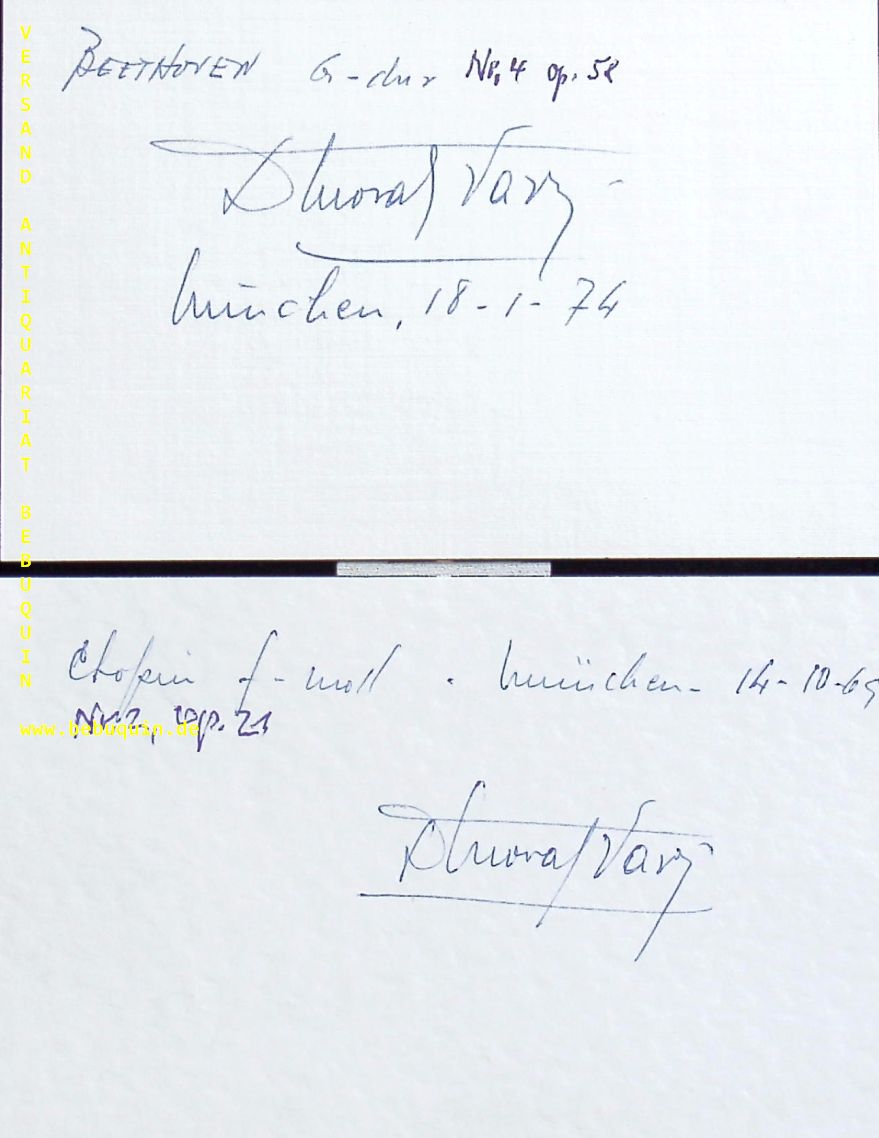 BEETHOVEN G-dur Nr. 4 op. 58
München, 18-1-74
Chopin f-moll. München- 14-10-69
Nr. 2, op. 21
VERSAND ANTIQUARIAT BEBUQUIN
www.bebuquin.de